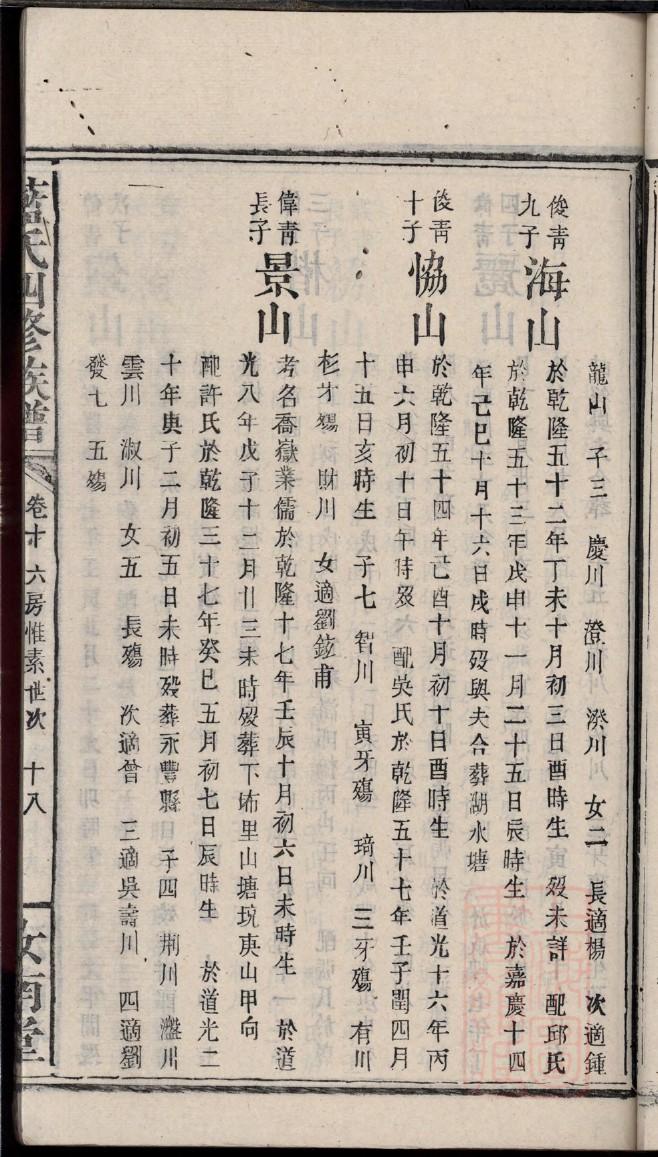 龍山 子三 慶川 澄川 湥川 女二 長適楊 次適鍾
俊青九子
海山
於乾隆五十二年丁未十月初三日酉時生 歿未詳 配邱氏
於乾隆五十三年戊申十一月二十五日辰時生 於嘉慶十四
年己巳十月十六日戌時歿與夫合葬湖水塘
俊青十子
恊山
於乾隆五十四年己酉十月初十日酉時生 於道光十六年丙
申六月初十日午時歿 配吳氏於乾隆五十七年壬子閏四月
十五日亥時生 子七 智川 寅牙殤 琦川 三牙殤 有川
杉牙殤 財川 女適劉鋐甫
偉青長子
景山
考名喬嶽業儒於乾隆十七年壬辰十月初六日未時生 於道
光八年戊子十二月廿三未時歿葬下㘵里山塘坑庚山甲向
配許氏於乾隆三十七年癸巳五月初七日辰時生 於道光二
十年庚子二月初五日未時歿葬永豐縣 子四 荆川 瀊川
雲川 淑川 女五 長殤 次適曾 三適吳壽川 四適劉
發七 五殤
氏四修族譜
卷十 六房惟素世次 十八
汝南堂